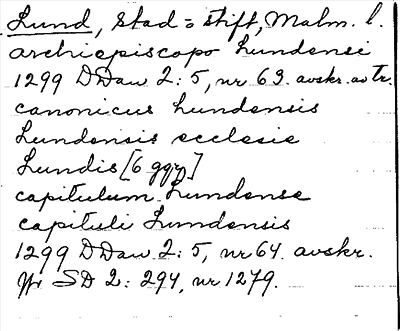 Lund, Stad = stift, Malm. l.
archiepiscopo Lundensi
1299 DDan 2: 5, nr 63. avskr. av Tr.
canonicus Lundensis
Lundensis ecclesie
Lundis [6 ggr]
capitulum Lundense
capituli Lundensis
1299 DDan 2: 5, nr 64. avskr.
Jfr SD 2: 294, nr 1279.